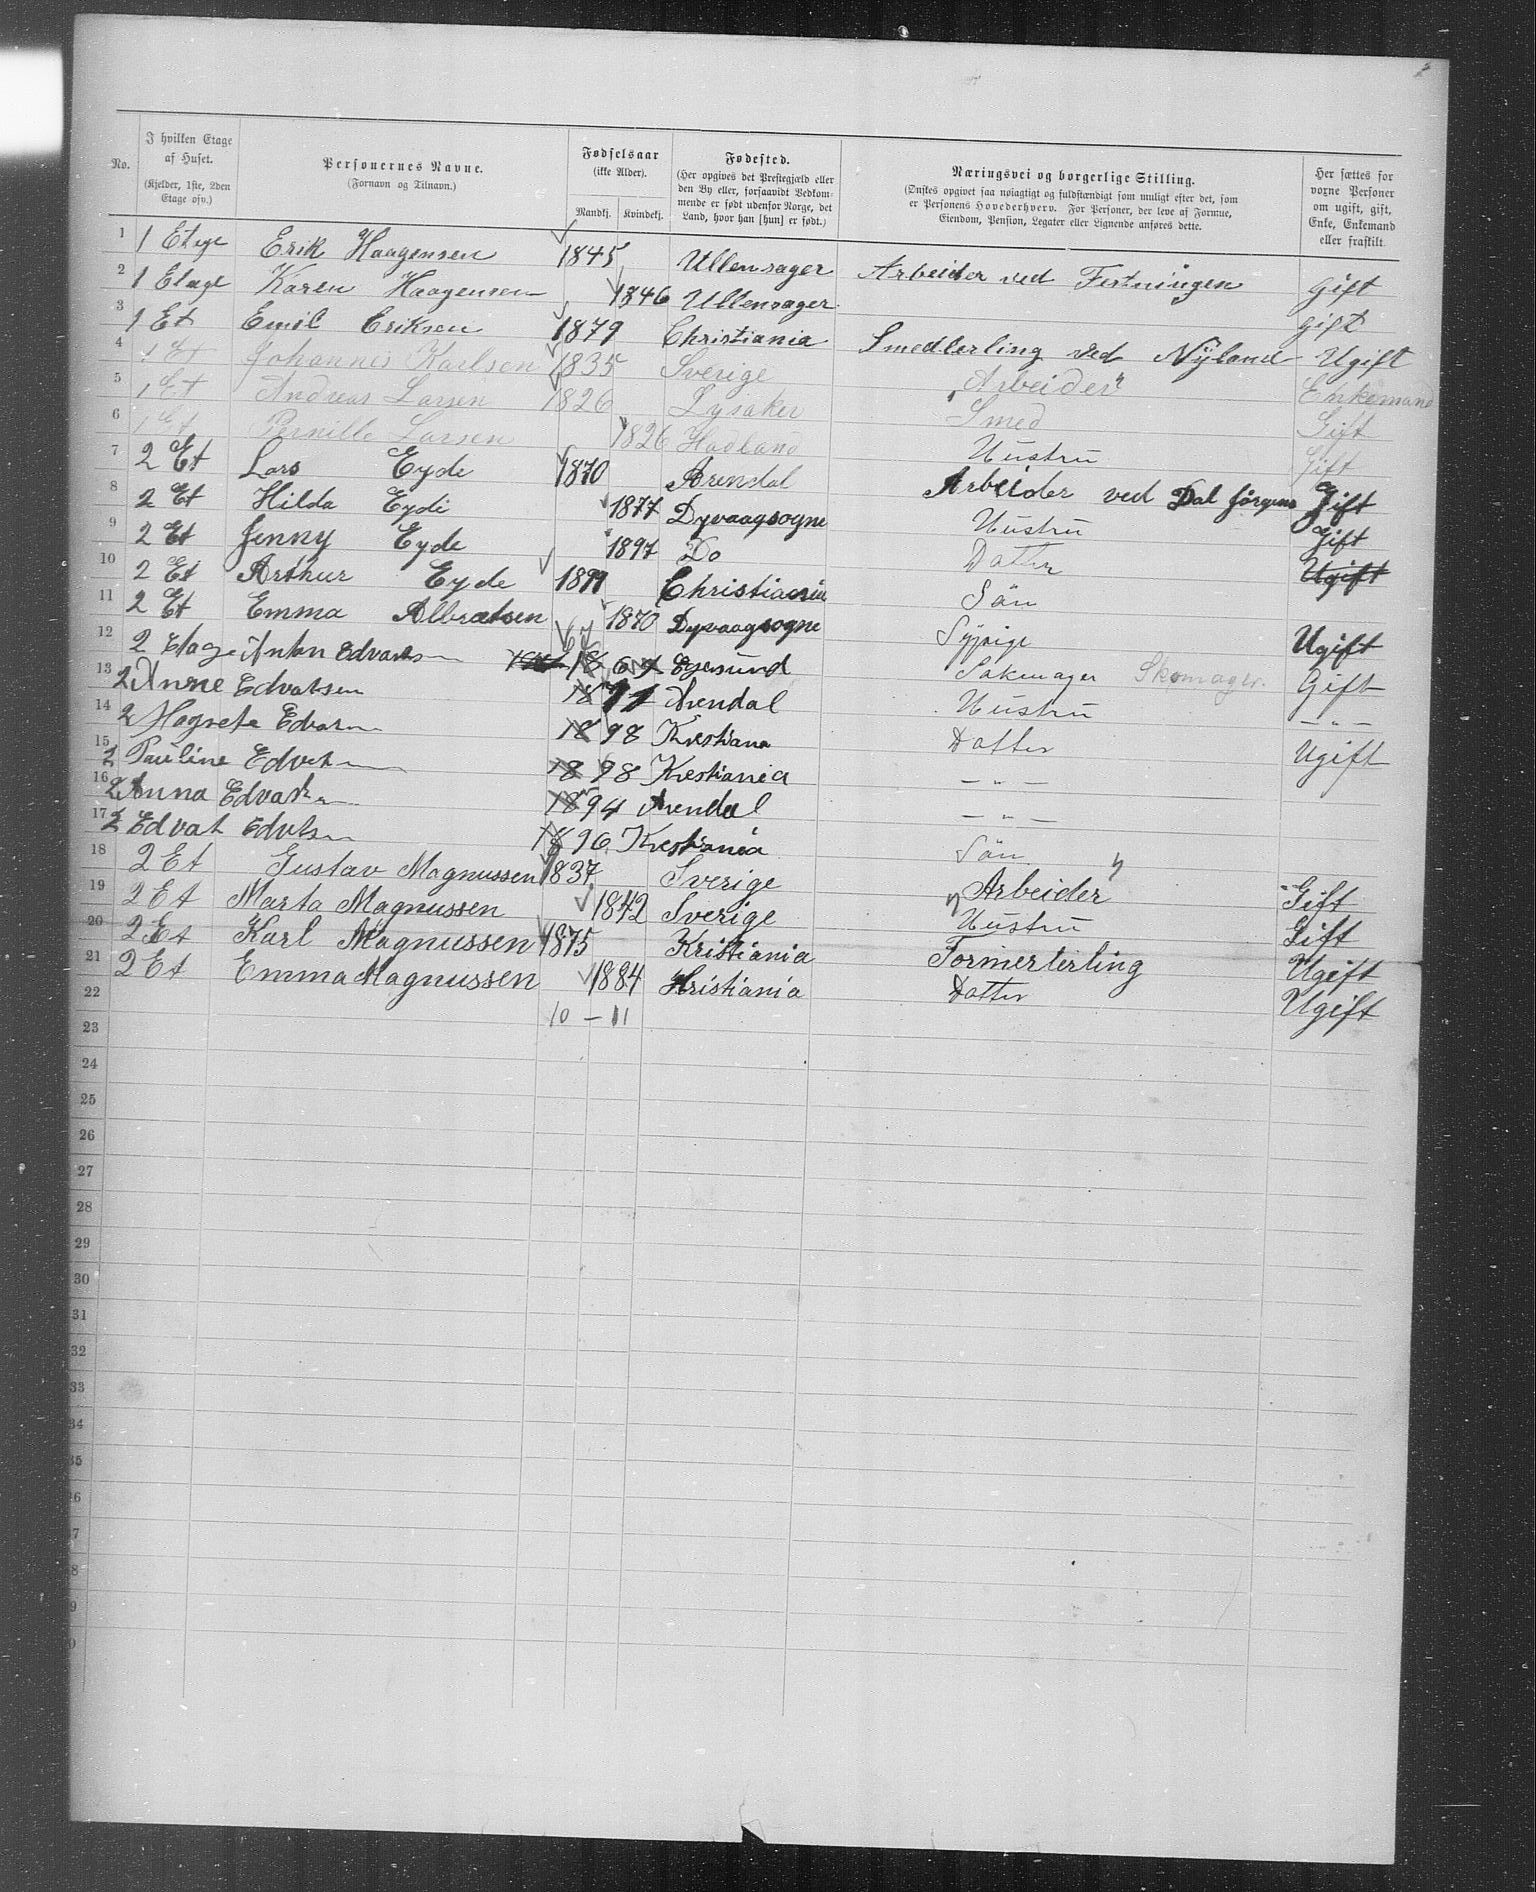 No. | I hvilken Etage af Huset. (Kjelder, 1ste, 2den Etage osv.) | Personernes Navne. (Fornavn og Tilnavn.) | Fødselsaar (ikke Alder). Mandkj. Kvindekj. | Fødested. (Her opgives det Prestegjæld eller den By eller, forsaavidt Vedkommende er født udenfor Norge, det Land, hvor han [hun] er født.) | Næringsvei og borgerlige Stilling. (Ønskes opgivet saa nøiagtigt og fuldstændigt som muligt efter det, som er Personens Hovederhverv. For Personer, der leve af Formue, Eiendom, Pension, Legater eller Lignende anføres dette. | Her sættes for voxne Personer om ugift, gift, Enke, Enkemand eller fraskilt.
1 1 Etage Erik Haagensen 1845 Ullensager Arbeider ved Festningen Gift
2 1 Etage Karen Haagensen 1846 Ullensager Gift
3 1 Et Emil Eriksen 1879 Christiania Smedlerling ved Nyland Ugift
4 1 Et Johannes Karlsen 1835 Sverige Arbeider Enkemand
5 1 Et Andreas Larsen 1826 Lysaker Smed Gift
6 1 Et Pernille Larsen 1826 Hadland Hustru Gift
7 2 Et Lars Eyde 1870 Arendal Arbeider ved Dal Jörgens Gift
8 2 Et Hilda Eyde 1877 Dyvaagsogne Hustru Gift
9 2 Et Jenny Eyde 1897 Do Datter Ugift
10 2 Et Arthur Eyde 1899 Christiania Sön
11 2 Et Emma Albratsen 1870 Dyvaagsogne Sypige Ugift
12 2 Etage Anton Edvarsen 67 18 67 Egersund Sakmager Skomager. Gift
13 2 Anne Edvatsen 1871 Arendal Hustru — " —
14 2 Magrete Edvarn 1898 Krestiana Datter Ugift
15 2 Pauline Edvatn 1898 Krestiania — " —
16 2 Anna Edvatn 1894 Arendal — " —
17 2 Edvat Edvtsn 1896 Krestiania Sön
18 2 Et Gustav Magnussen 1837 Sverige Arbeider Gift
19 2 Et Marta Magnussen 1842 Sverige Hustru Gift
20 2 Et Karl Magnussen 1875 Kristiania Formerlerling Ugift
21 2 Et Emma Magnussen 1884 Kristiania Datter Ugift
22 10 – 11
23
24
25
26
27
28
29
30
31
32
33
34
35
36
7
8
9
0